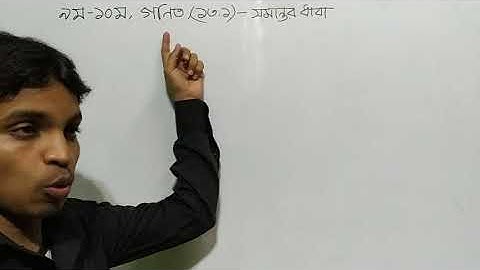 ৯ম-১০ম, গনিত (১৩.১) - সমান্তর ধারা